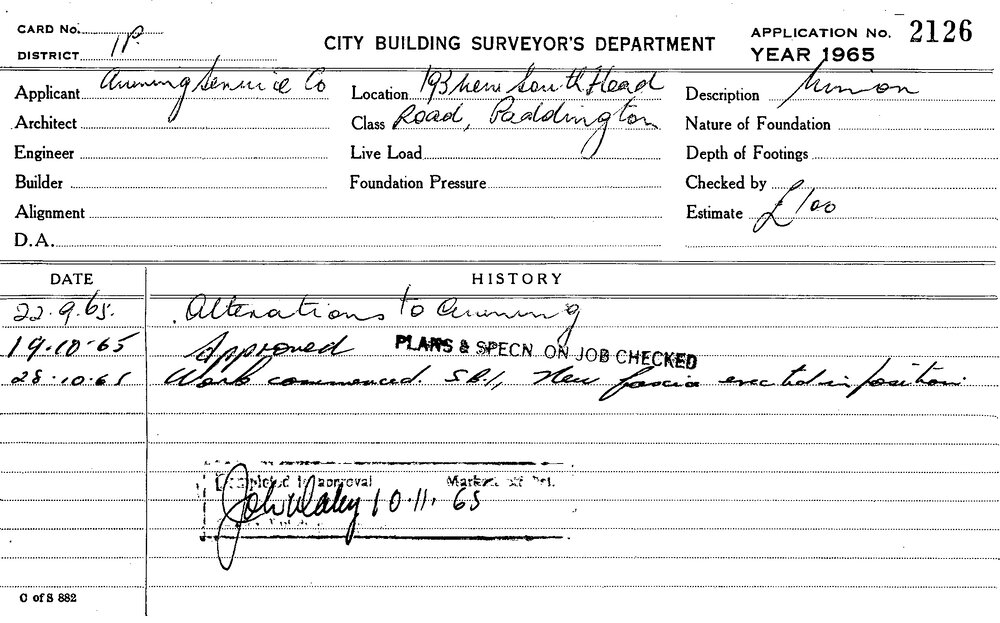 CARD No.
DISTRICT 1P.
CITY BUILDING SURVEYOR'S DEPARTMENT
APPLICATION No. 2126
YEAR 1965
Applicant Awning Service Co
Location 193 New South Head
Description Minor
Architect
Class Road, Paddington
Nature of Foundation
Engineer
Live Load
Depth of Footings
Builder
Foundation Pressure
Checked by
Alignment
Estimate £100
D.A.
DATE HISTORY
22.9.65. Alterations to awning
19.10.65 Approved PLANS & SPECN ON JOB CHECKED
28.10.65 Work commenced. New fascia erected in position.
Completed to approval
10.11.65
C of S 882